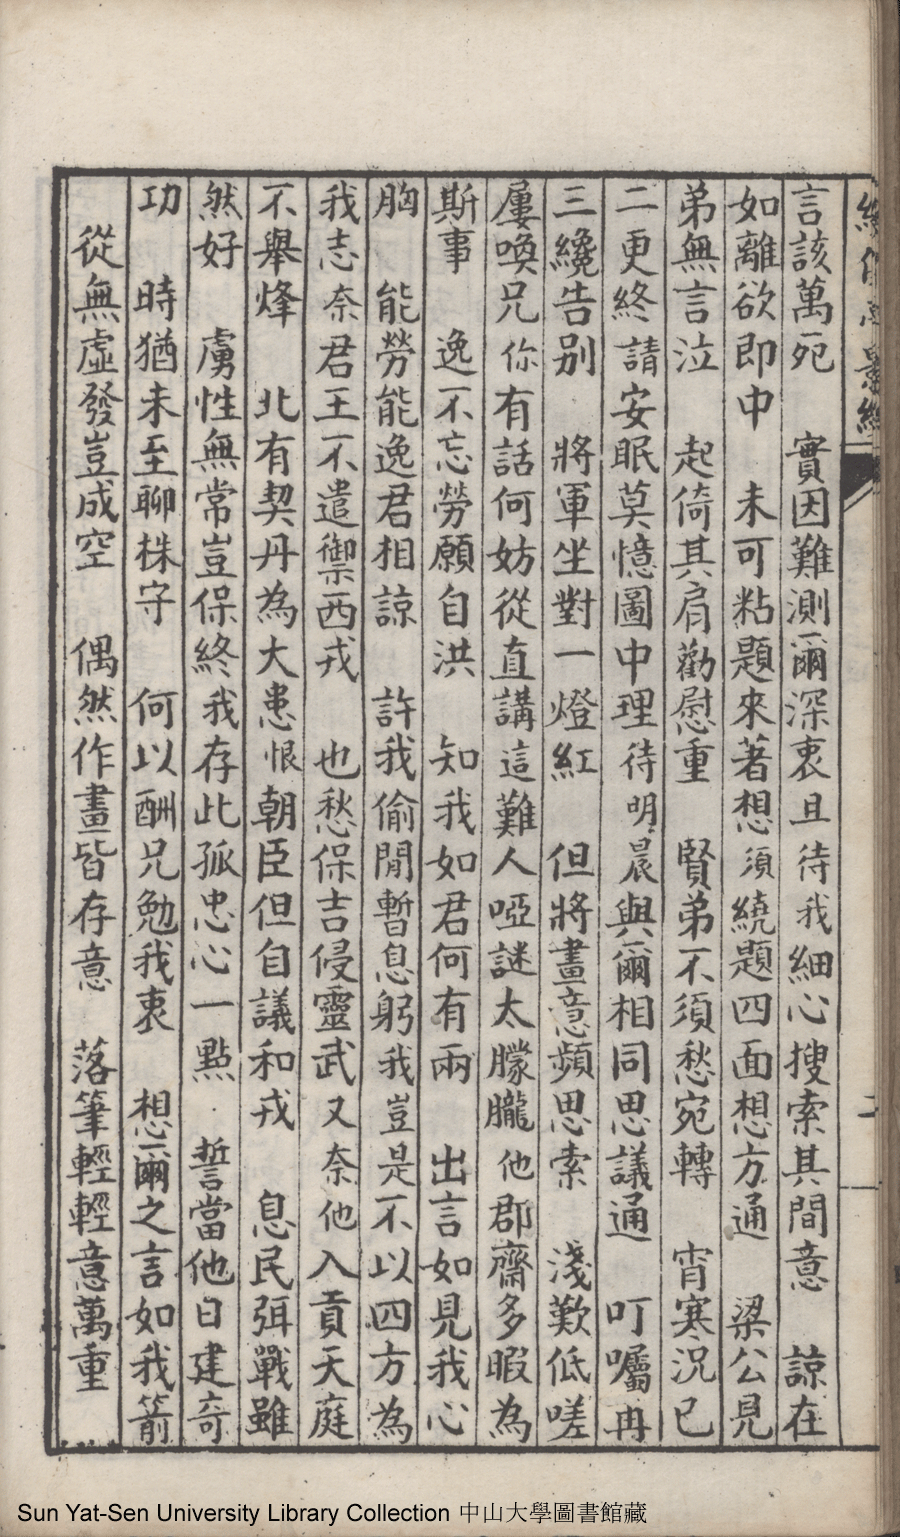 言該萬死　實因難測爾深衷且待我細心搜索其間意　諒在
如離欲即中　未可粘題來著想須繞題四面想方通　梁公見
弟無言泣　起倚其肩勸慰重　賢弟不須愁宛轉　宵寒况已
二更終請安眠莫憶圖中理待明晨與爾相同思議通　叮囑冉
三纔告別　將軍坐對一燈紅　但將畫意頻思索　淺歎低嗟
屢喚兄你有話何妨從直講這難人啞謎太朦朧他郡齋多暇為
斯事　逸不忘勞願自洪　知我如君何有兩　出言如見我心
胸　能勞能逸君相諒　許我偷閒暫息躬我豈是不以四方為
我志奈君王不遣禦西戎　也愁保吉侵靈武又奈他入貢天庭
不舉烽　北有契丹為大患恨朝臣但自議和戎　息民弭戰雖
然好　虜性無常豈保終我存此孤忠心一點　誓當他日建奇
功　時猶未至聊株守　何以酬兄勉我衷　想爾之言如我箭
從無虛發豈成空　偶然作畫皆存意　落筆輕輕意萬重
二
Sun Yat-Sen University Library Collection 中山大學圖書館藏